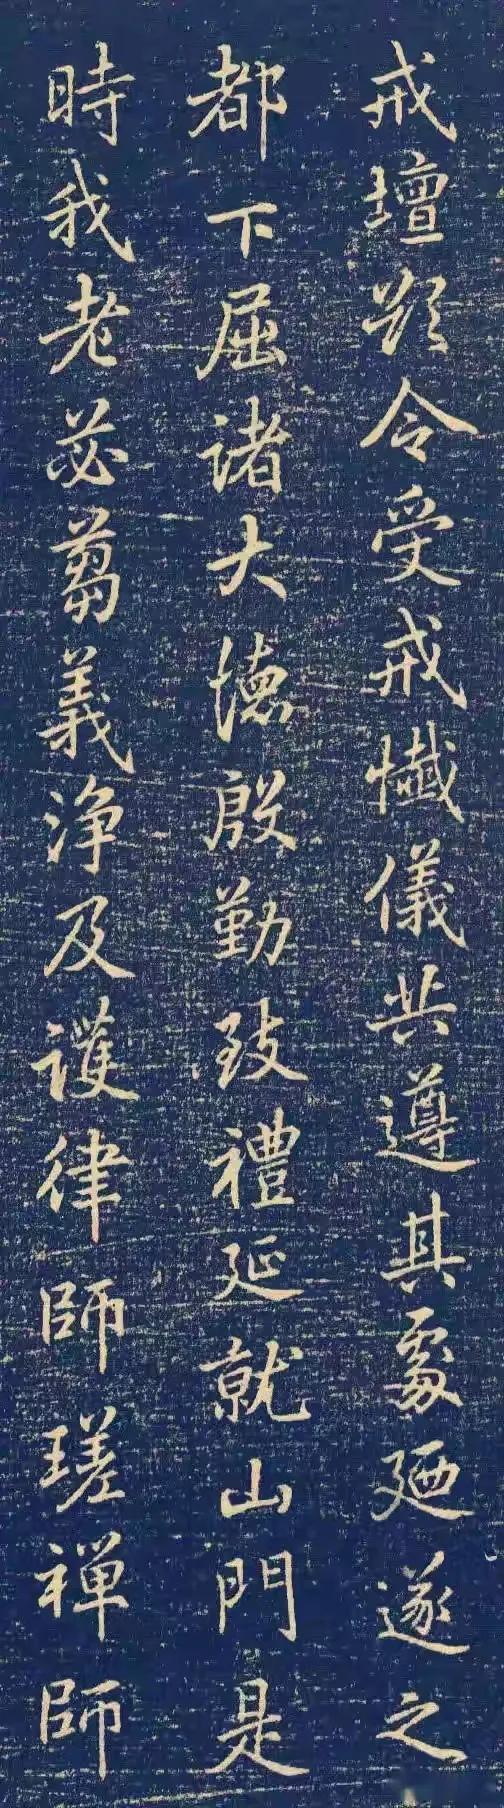 戒壇欲令受戒懺儀共遵其處廼遂之
都下屈諸大德殷勤致禮延就山門是
時我老苾蒭義淨及護律師瑳禪師